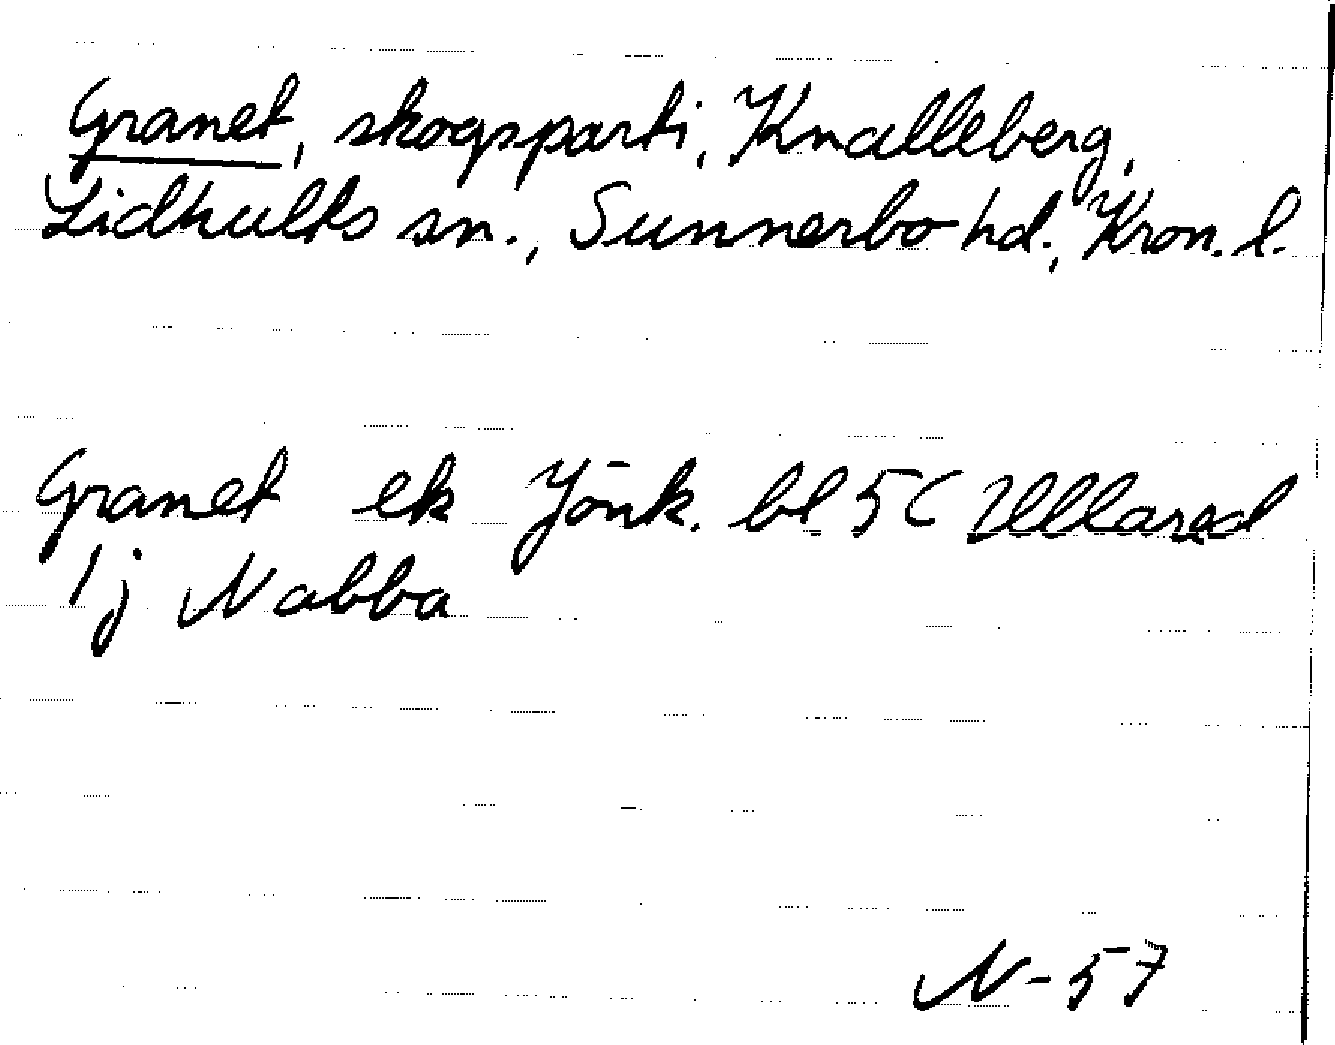 Granet, skogsparti, Knalleberg,
Lidhults sn., Sunnerbo hd., Kron. l.
Granet ek Jönk. bl 5C Ullared
1j Nabba
N-57